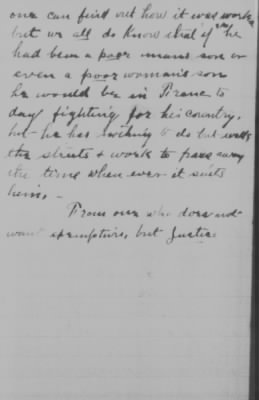 one can find out how it was worked
but we all do know that if he
had been a poor mans son or
even a poor woman's son
he would be in France to
day fighting for his country.
but he has nothing to do but walk
the streets & work to pass away
the time when ever it suits
him. -
From one who does not
want exemptions, but Justice